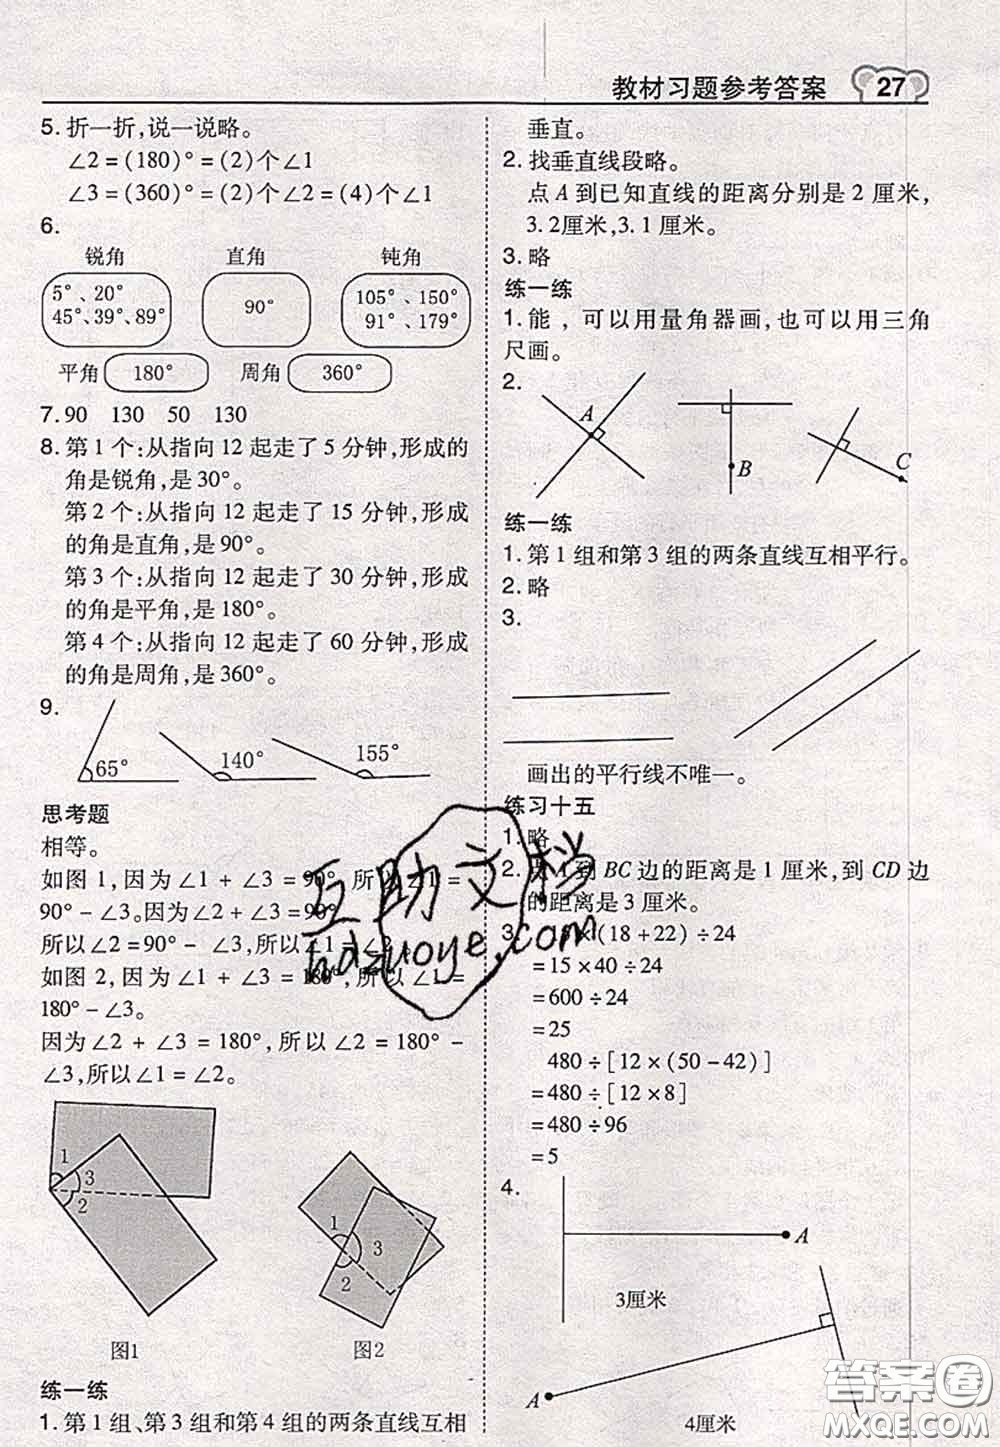 教材习题参考答案 27
5. 折一折,说一说略。
∠2=(180)°=(2)个∠1
∠3=(360)°=(2)个∠2=(4)个∠1
6.
锐角 直角 钝角
5°、20°
45°、39°、89°
90°
105°、150°
91°、179°
平角 180° 周角 360°
7. 90 130 50 130
8. 第1个:从指向12起走了5分钟,形成的
角是锐角,是30°。
第2个:从指向12起走了15分钟,形成
的角是直角,是90°。
第3个:从指向12起走了30分钟,形成
的角是平角,是180°。
第4个:从指向12起走了60分钟,形成
的角是周角,是360°。
9.
65° 140° 155°
思考题
相等。
如图1,因为∠1+∠3=90°,所以∠1=
90°-∠3。因为∠2+∠3=90°
所以∠2=90°-∠3,所以∠1=∠2。
如图2,因为∠1+∠3=180°,所以∠1=
180°-∠3。
因为∠2+∠3=180°,所以∠2=180°-
∠3,所以∠1=∠2。
1 3 2
图1
1 3 2
图2
练一练
1. 第1组、第3组和第4组的两条直线互相
垂直。
2. 找垂直线段略。
点A到已知直线的距离分别是2厘米,
3.2厘米,3.1厘米。
3. 略
练一练
1. 能,可以用量角器画,也可以用三角
尺画。
2.
A B C
练一练
1. 第1组和第3组的两条直线互相平行。
2. 略
3.
画出的平行线不唯一。
练习十五
1. 略
2. A到BC边的距离是1厘米,到CD边
的距离是3厘米。
3. ×(18+22)÷24
=15×40÷24
=600÷24
=25
480÷[12×(50-42)]
=480÷[12×8]
=480÷96
=5
4.
A
3厘米
A
4厘米
互助文档
hdzuoye.com
答案圈
MXQE.COM